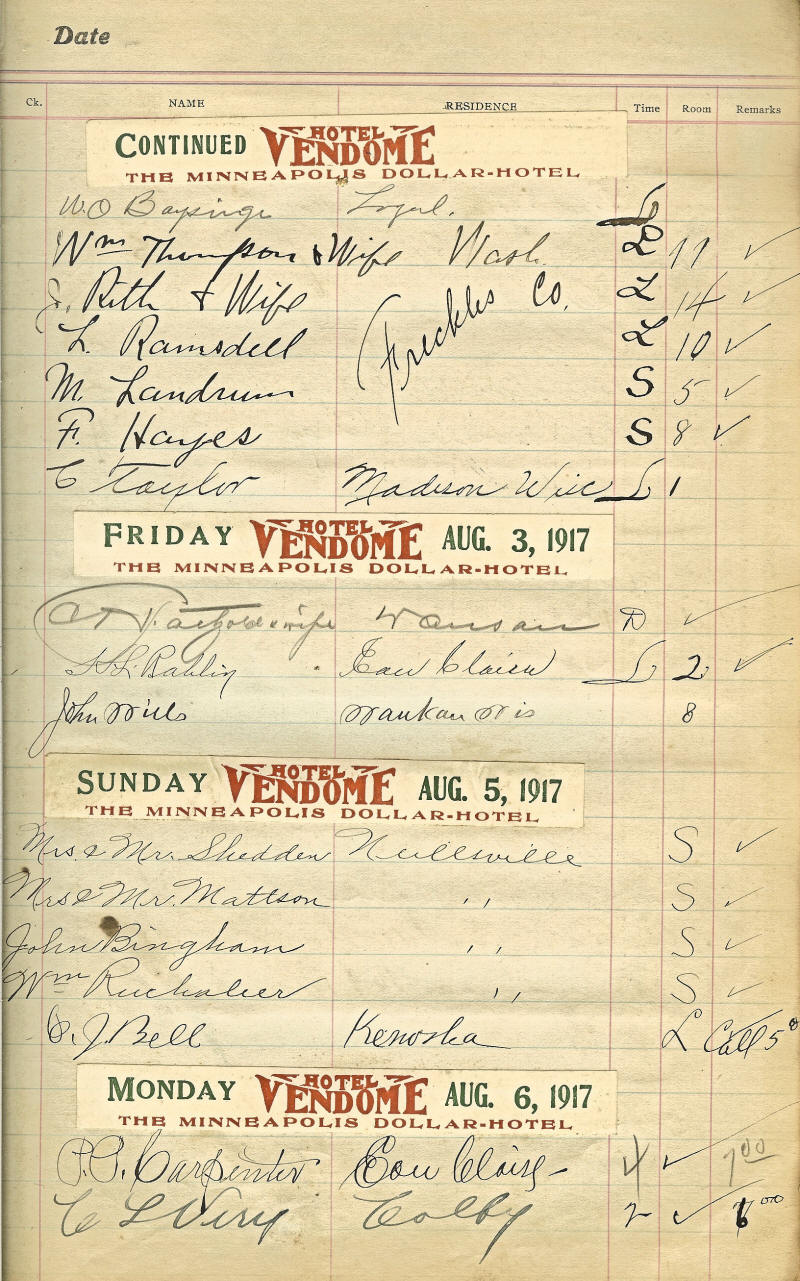 Date
Ck. NAME RESIDENCE Time Room Remarks
CONTINUED HOTEL VENDOME
THE MINNEAPOLIS DOLLAR-HOTEL
W.O Loyal. L
Wm Thompson & Wife Wash. L 11 ✓
J. Rith & Wife Freckles Co. L 14 ✓
L. Ramsdell L 10 ✓
M. Landrum S 5 ✓
F. Hayes S 8 ✓
C Taylor Madison Wisc L 1
FRIDAY HOTEL VENDOME AUG. 3, 1917
THE MINNEAPOLIS DOLLAR-HOTEL
& wife Wausau D ✓
Eau Claire L 2 ✓
John Wills Waukau Wis 8
SUNDAY HOTEL VENDOME AUG. 5, 1917
THE MINNEAPOLIS DOLLAR-HOTEL
Mrs. & Mr. Shedden Neillsville S ✓
Mrs & Mr. Mattson " S ✓
John Bingham " S ✓
Wm " S ✓
J. Bell Kenosha L Call 5°
MONDAY HOTEL VENDOME AUG. 6, 1917
THE MINNEAPOLIS DOLLAR-HOTEL
P.P. Carpenter Eau Claire 4 ✓ 1 00
C L Very Colby 2 ✓ 00